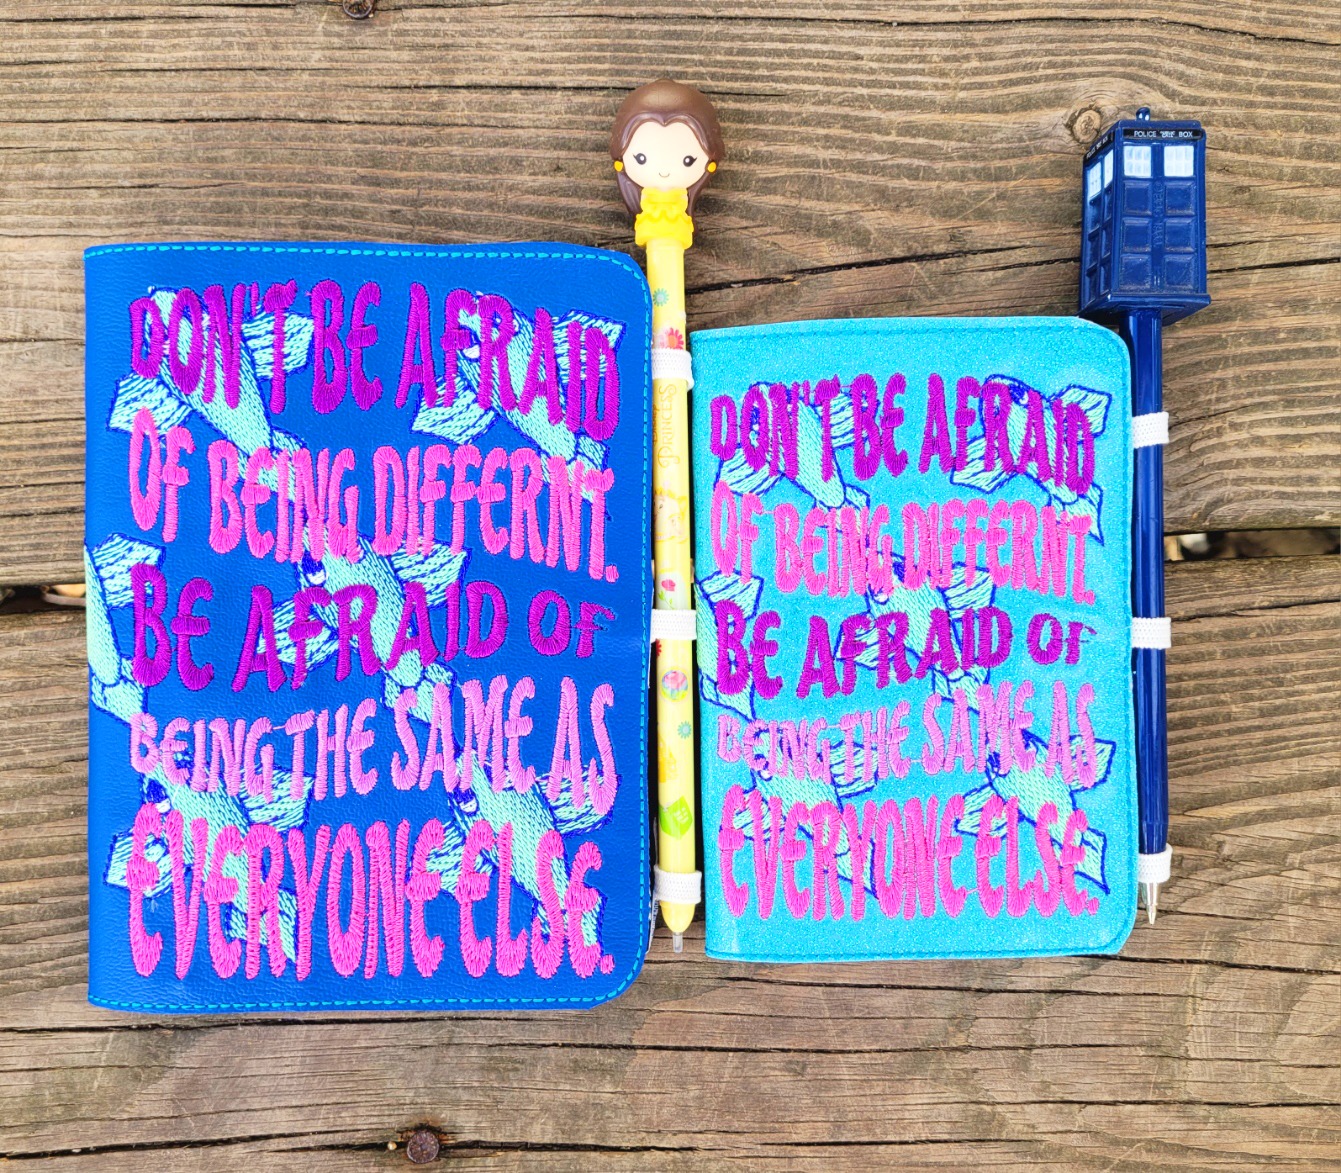 DON'T BE AFRAID
OF BEING DIFFERNT.
BE AFRAID OF
BEING THE SAME AS
EVERYONE ELSE.
PRINCESS
DON'T BE AFRAID
OF BEING DIFFERNT.
BE AFRAID OF
BEING THE SAME AS
EVERYONE ELSE.
POLICE BOX